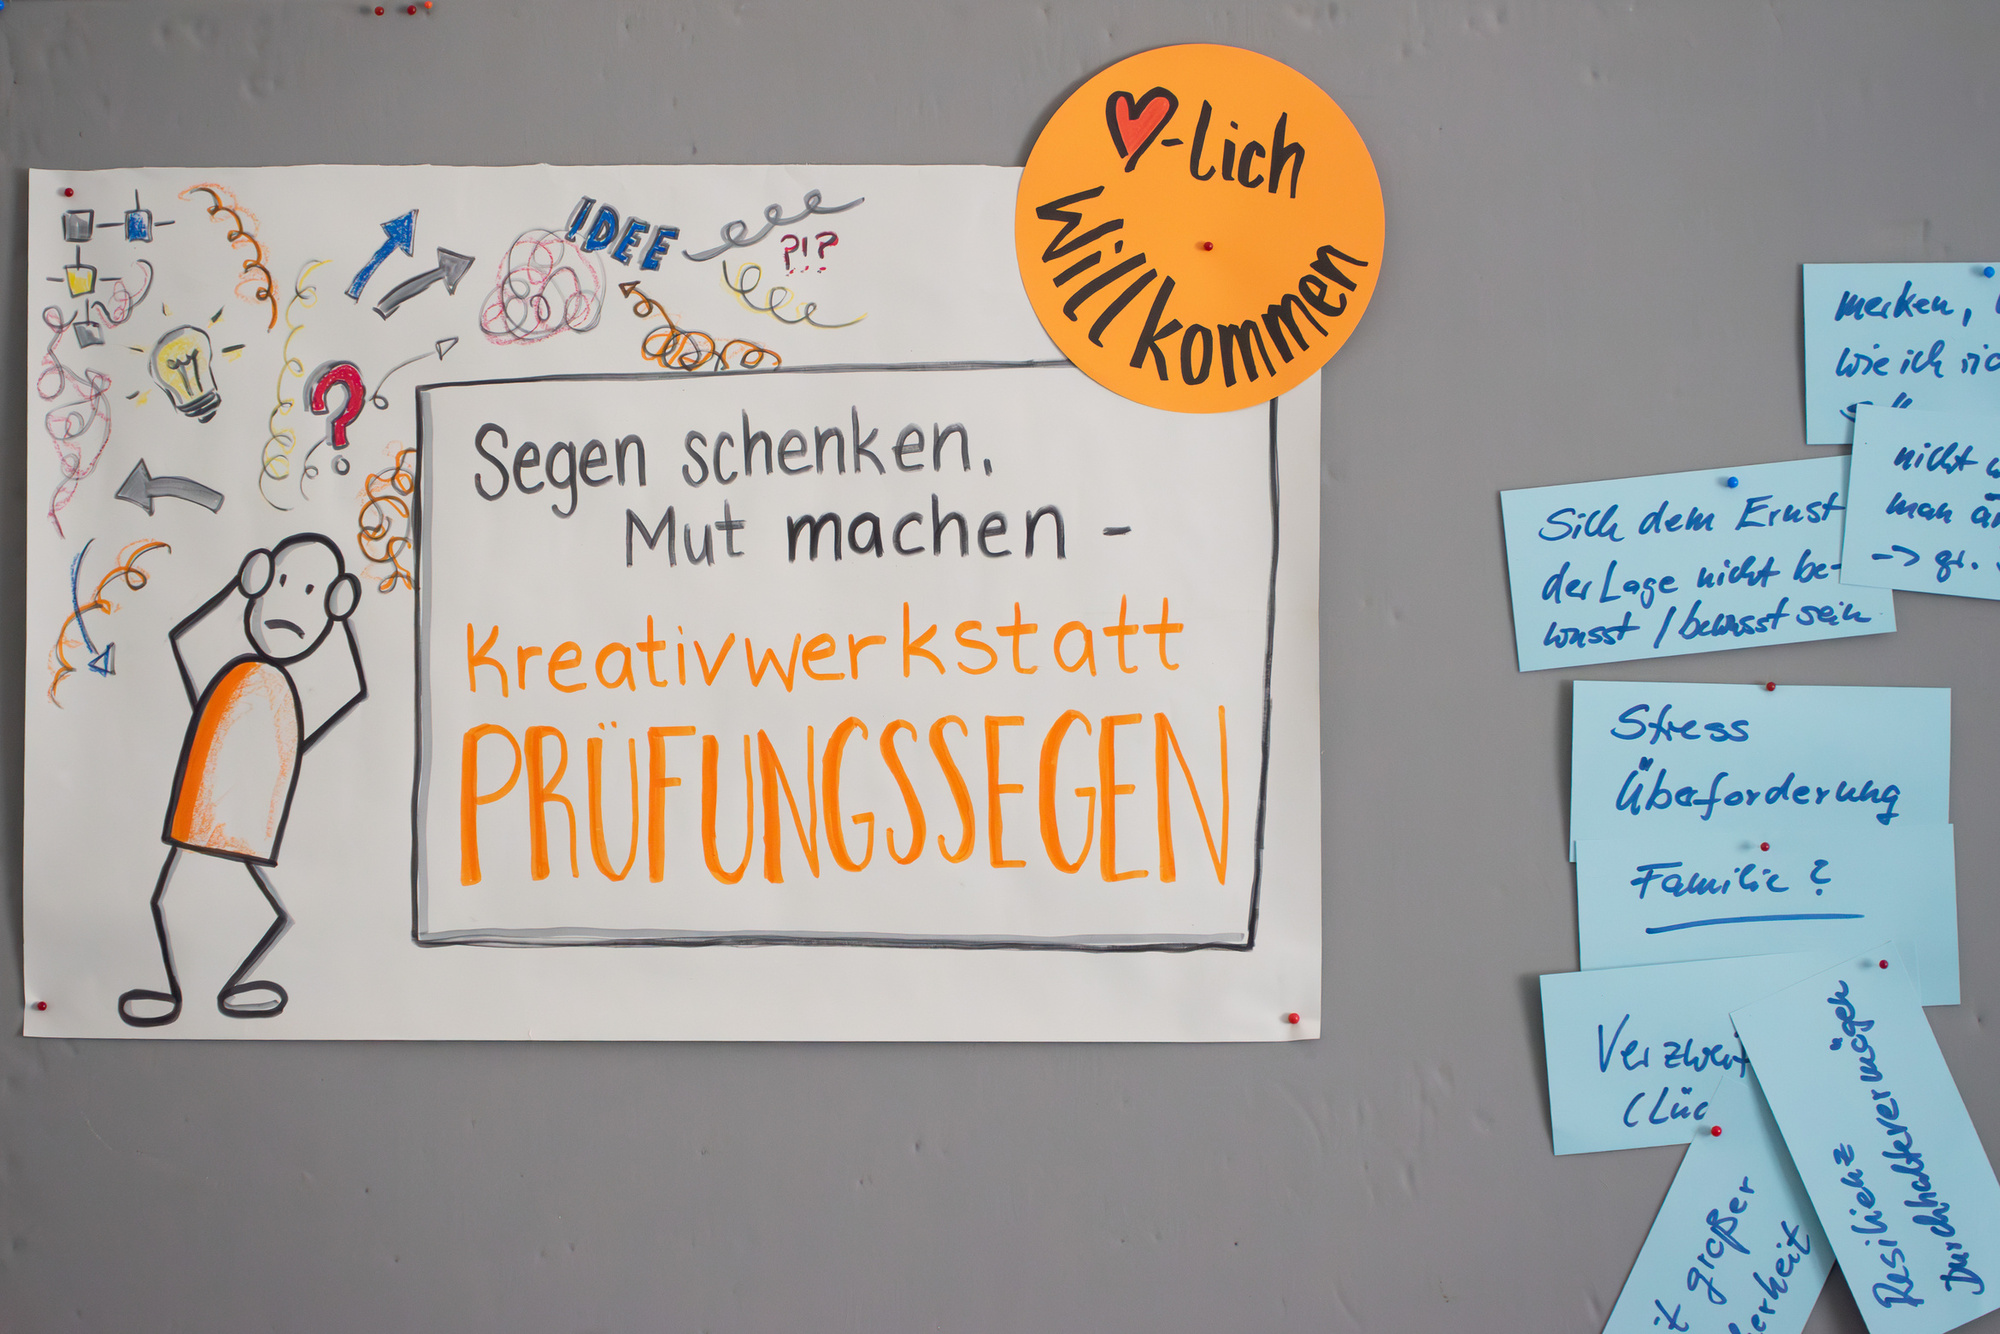 IDEE
?!?
?
-lich
Willkommen
Segen schenken.
Mut machen -
Kreativwerkstatt
PRÜFUNGSSEGEN
merken,
wie ich
nicht
man
-> gr.
Sich dem Ernst
der Lage nicht be-
wusst / bewusst sein
Stress
Überforderung
Familie?
Verzweif
(Lüc
Resilienz
Durchhaltevermögen
it großer
erheit